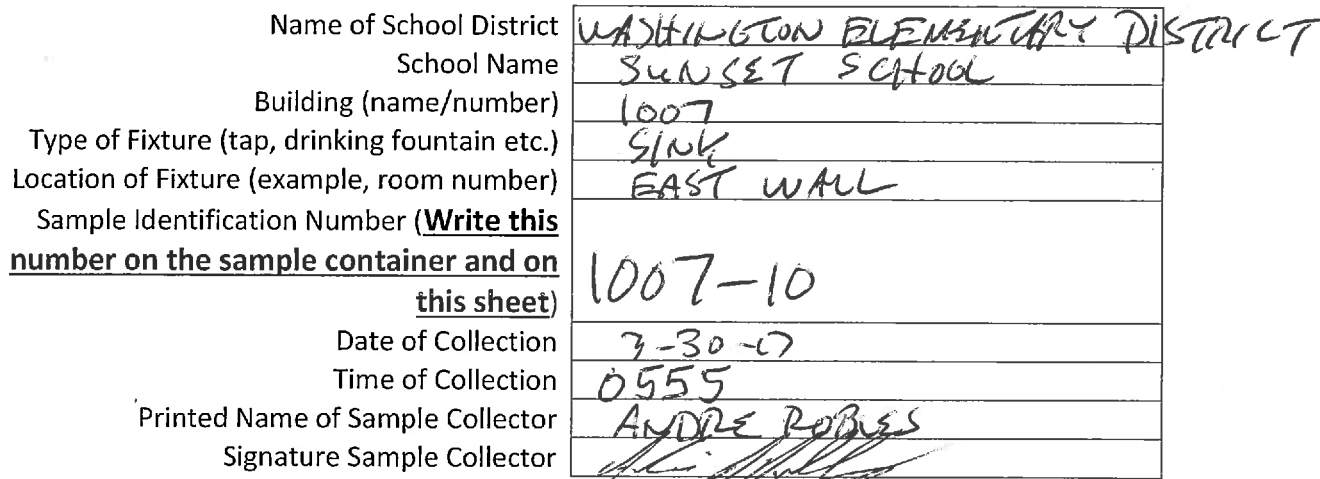 Name of School District WASHINGTON ELEMENTARY DISTRICT
School Name SUNSET SCHOOL
Building (name/number) 1007
Type of Fixture (tap, drinking fountain etc.) SINK
Location of Fixture (example, room number) EAST WALL
Sample Identification Number (Write this
number on the sample container and on
this sheet) 1007-10
Date of Collection 3-30-17
Time of Collection 0555
Printed Name of Sample Collector ANDRE ROBLES
Signature Sample Collector